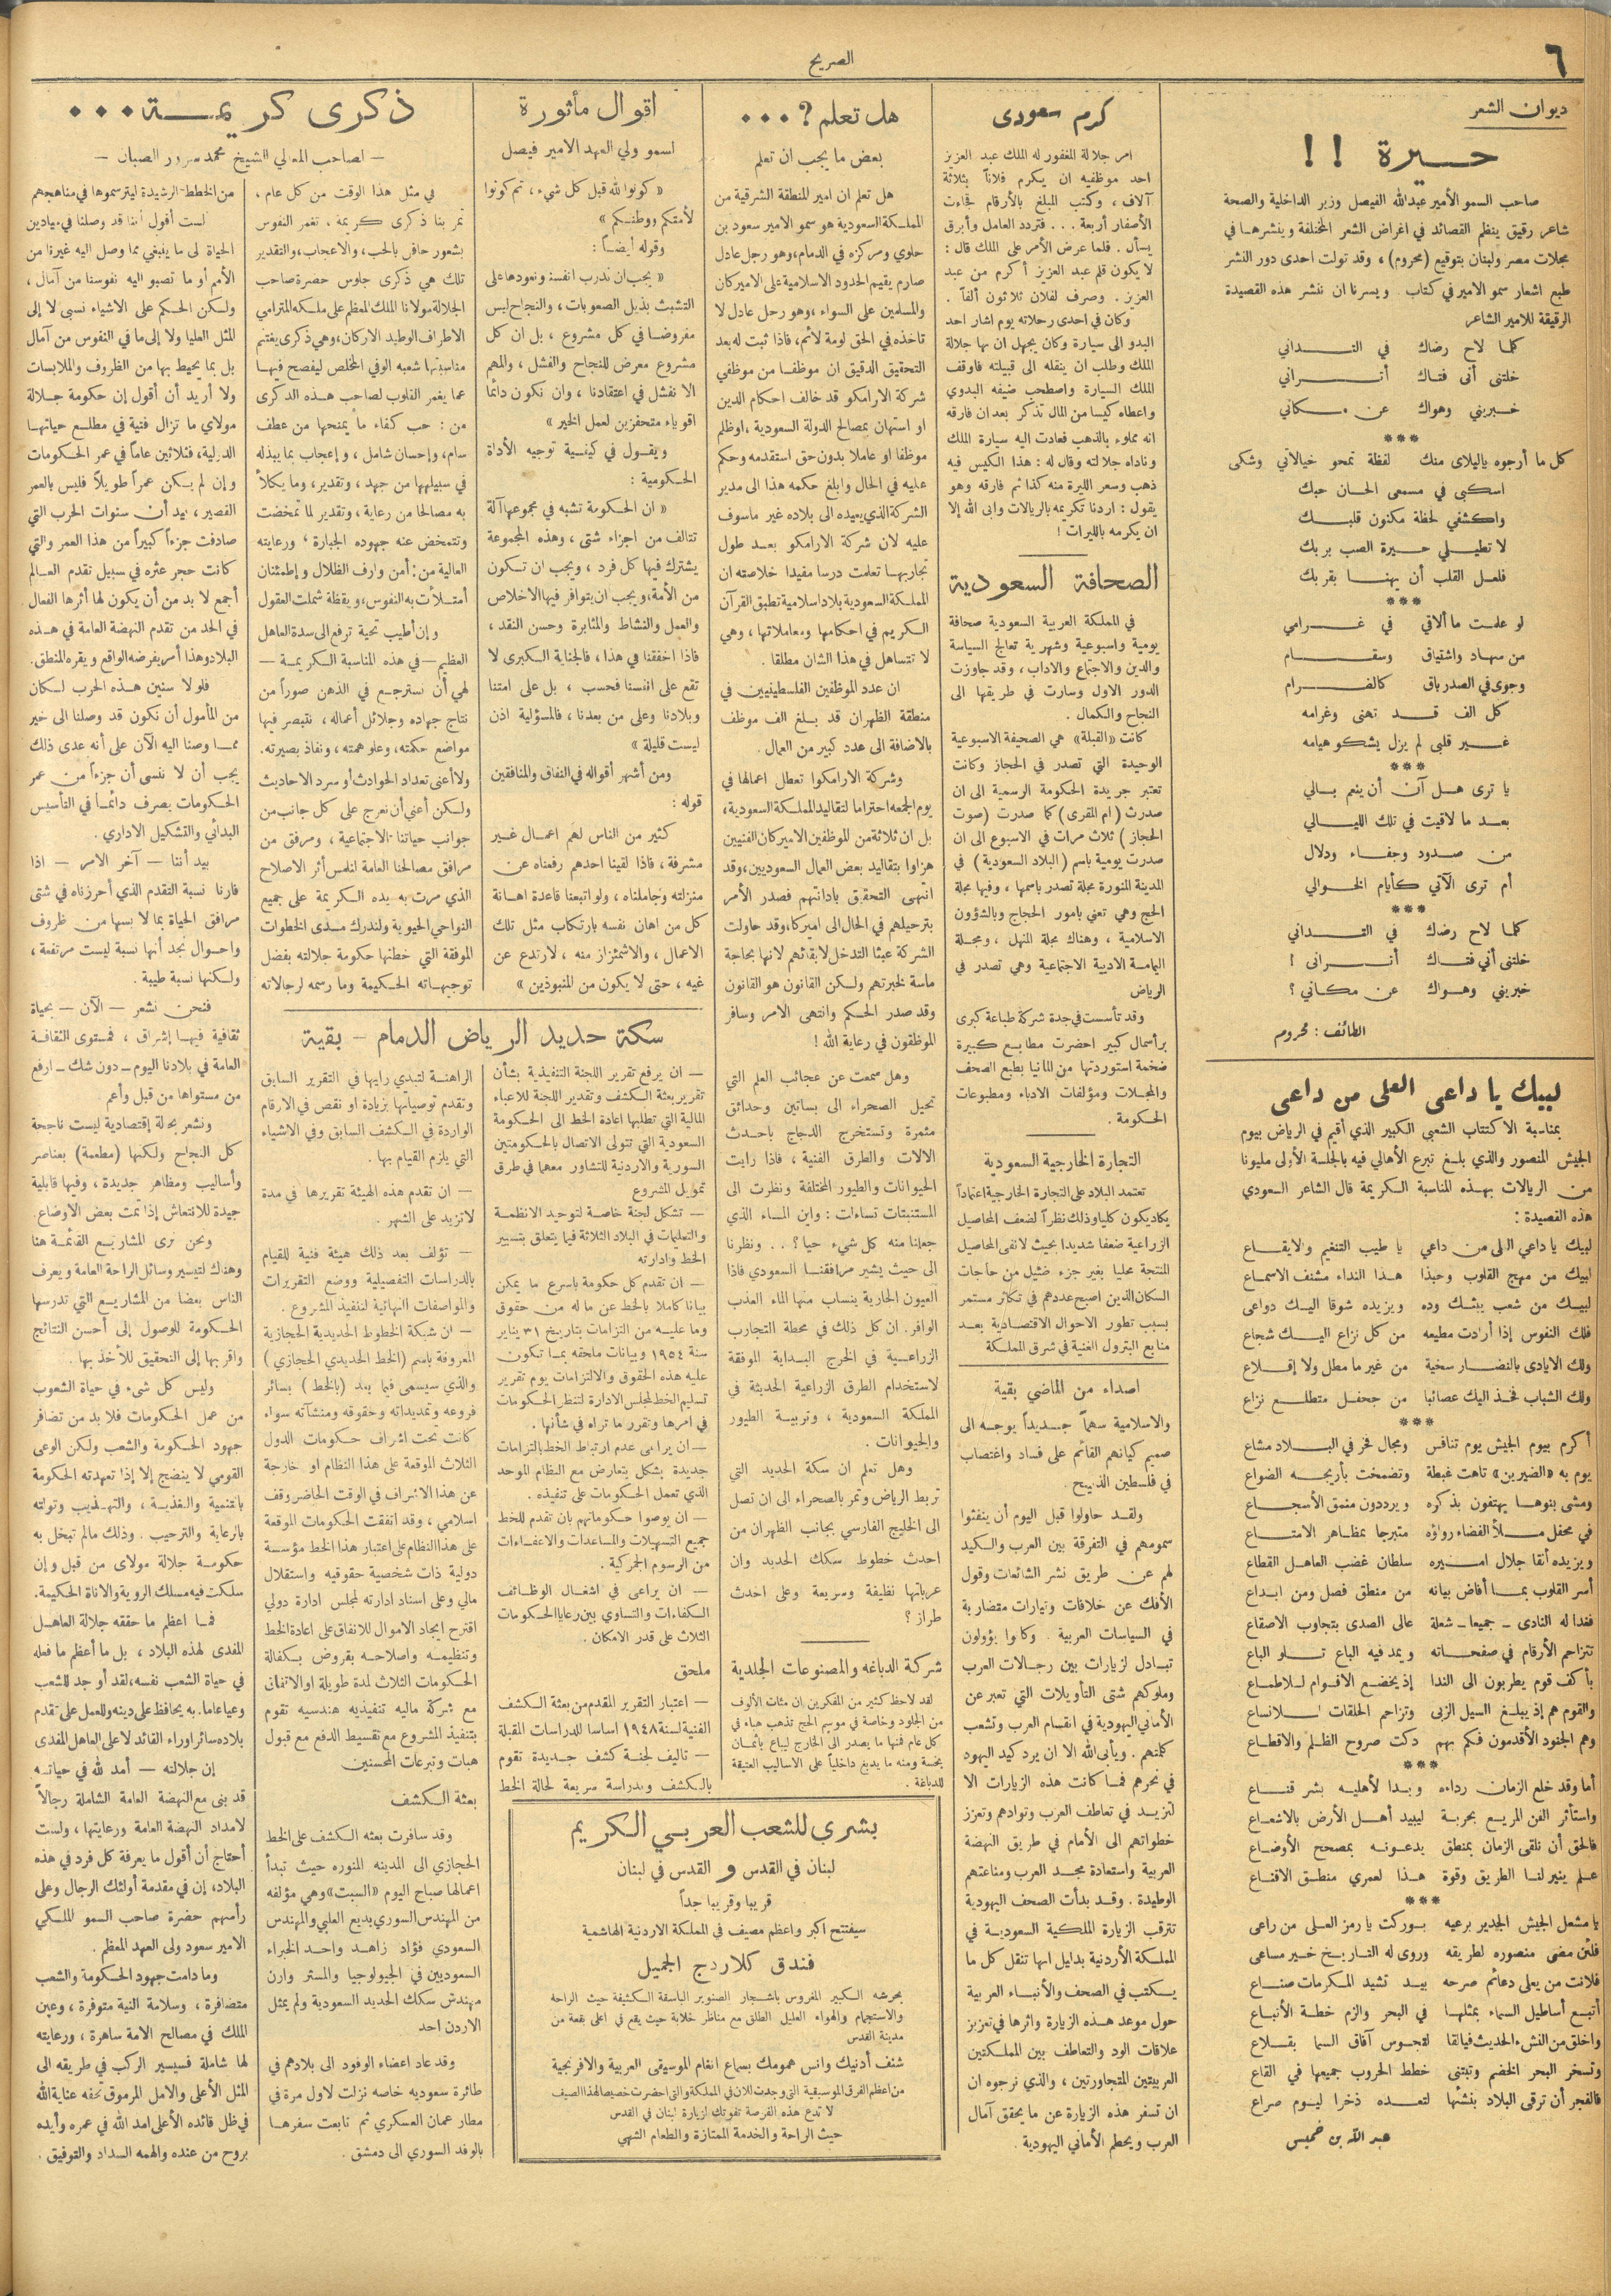 ٦
الصريح
ديوان الشعر
حـــيرة !!
صاحب السمو الأمير عبدالله الفيصل وزير الداخلية والصحة
شاعر رقيق ينظم القصائد في اغراض الشعر المختلفة وينشرهـا في
مجلات مصر ولبنان بتوقيع (محروم) ، وقد تولت احدى دور النشر
طبع اشعار سمو الامير في كتاب ويسرنا ان ننشر هذه القصيدة
الرقيقة للامير الشاعر
كلمـا لاح رضاك في التـــداني
خلتنى أنى فتـاك أنـــراني
خـبريني وهواك عن مـكاني
***
كل ما أرجوه ياليلاى منك لفظة تمحو خيالاتي وشكى
اسكبى في مسمعى الحـان حبك
واكشفي لحظة مكنون قلبـــك
لا تطيـلي حـيرة الصب بربك
فلعـل القلب أن يهنــا بقربك
***
لو علمـت ما ألاقي في غــرامي
من سهـاد واشتياق وسقــام
وجوى في الصدر باق كالضــرام
كل الف قـــد تهنى وغرامه
غـــير قلبى لم يزل يشكو هيامه
***
يا ترى هــل آن أن ينعم بــالي
بعـد ما لاقيت في تلك الليــالي
من صـدود وجفـاء ودلال
أم ترى الآتي كأيام الخـوالي
***
كلمـا لاح رضاك في التــداني
خلتنى أني فتـاك أتــرانى !
خبريني وهـواك عن مكـاني ؟
الطائف : محروم
لبيك يا داعى العلى من داعى
بمناسبة الاكتتاب الشعبي الكبير الذي أقيم في الرياض بيوم
الجيش المنصور والذي بلـغ تبرع الأهالي فيه بالجلسة الأولى مليونا
من الريالات بهـذه المناسبة الكريمة قال الشاعر السعودي
هذه القصيدة :
لبيك يا داعي العلى من داعي يا طيب التنغيم والايقـــاع
لبيك من مهج القلوب وحبذا هـذا النداء مشنف الاسمـاع
لبيـك من شعب يبثـك وده ويزيده شوقا اليـك دواعى
فلك النفوس إذا أرادت مطيعه من كل نزاع اليـك شجاع
ولك الايادى بالنضـار سخية من غير ما مطل ولا إقـــلاع
ولك الشباب فخـذ اليك عصائبا من جحفـل متطلــع نزاع
***
أكرم بيوم الجيش يوم تنافس ومجال فخر في البـلاد مشاع
يوم به «الضيرين» تاهت غبطة وتضمخت بأريجـه الضواع
ومشى بنوهـا يهتفون بذكره ويرددون منمق الأسجــاع
في محفل مــلأ الفضاء رواؤه متبرجا بمظـاهر الامتــاع
ويزيده أنقا جلال امــيره سلطان غضب العاهـل القطاع
أسر القلوب بمــا أفاض بيانه من منطق فصل ومن ابـداع
فغدا له النادى - جميعا - شعلة عالى الصدى بتجاوب الاصقاع
تتزاحم الأرقام في صفحــاته ويمد فيه الباع تــلو الباع
بأكف قوم يطربون الى الندا إذ يخضـع الاقـوام لـلاطماع
والقوم هم إذ يبلـغ السيل الزبى وتزاحم الحلقات لــلانساع
وهم الجنود الأقدمون فكم بهم دكت صروح الظـلم والاقطـاع
***
أما وقد خلع الزمان رداءه وبـدا لأهليـه بشر قنـــاع
واستأثر الفن المريـع بحربـة ليبيد أهـل الأرض بالاشعـاع
فالحق أن نلقى الزمان بمنطق يدعـونـه بمصحح الأوضـاع
علـم ينير لنـا الطريق وقوة هـذا لعمري منطـق الاقنـاع
***
يا مشعل الجيش الجدير برعيه بـوركت يا رمز العـلى من راعى
فلئن مضى منصوره لطريقه وروى له التاريـخ خـير مساعى
فلانت من يعلى دعائم صرحه بيـد تشيد المكرمات صنـاع
أتبـع أساطيل السماء بمثلهـا في البحر والزم خطـة الأتبـاع
واخلق من النشء الحديث فيالقا لتجـوس آفاق السما بقــلاع
وتسخر البحر الخضم وتبتنى خطط الحروب جميعها في القاع
فالفجر أن ترقى البلاد بنشئها لتعـده ذخرا ليـوم صراع
عبد الله بن خميس
كرم سعودى
امر جلالة المغفور له الملك عبد العزيز
احد موظفيه ان يكرم فلاناً بثلاثة
آلاف ، وكتب المبلغ بالأرقام فجاءت
الأصفار أربعة . . . فتردد العامل وأبرق
يسأل . فلما عرض الأمر على الملك قال :
لا يكون قلم عبد العزيز أكرم من عبد
العزيز . وصرف لفلان ثلاثون ألفاً .
وكان في احدى رحلاته يوم اشار احد
البدو الى سيارة وكان يجهل ان بها جلالة
الملك وطلب ان ينقله الى قبيلته فاوقف
الملك السيارة واصطحب ضيفه البدوي
واعطاه كيسا من المال تذكر بعد ان فارقه
انه مملوء بالذهب فعادت اليه سيارة الملك
وناداه جلالته وقال له : هذا الكيس فيه
ذهب وسعر الليرة منه كذا ثم فارقه وهو
يقول : اردنا تكريمه بالريالات وابى الله إلا
ان يكرمه بالليرات !
الصحافة السعودية
في المملكة العربية السعودية صحافة
يومية واسبوعية وشهرية تعالج السياسة
والدين والاجتماع والاداب ، وقد جاوزت
الدور الاول وسارت في طريقها الى
النجاح والكمال .
كانت «القبلة» هي الصحيفة الاسبوعية
الوحيدة التي تصدر في الحجاز وكانت
تعتبر جريدة الحكومة الرسمية الى ان
صدرت (ام القرى) كما صدرت (صوت
الحجاز) ثلاث مرات في الاسبوع الى ان
صدرت يومية باسم (البلاد السعودية) في
المدينة المنورة مجلة تصدر باسمها ، وفيها مجلة
الحج وهي تعني بامور الحجاج وبالشؤون
الاسلامية ، وهناك مجلة المنهل ، ومجـلة
اليمامـة الادبية الاجتماعية وهي تصدر في
الرياض
وقد تأسست في جدة شركة طباعة كبرى
برأسمال كبير احضرت مطابـع كبيرة
ضخمة استوردتها من المانيا بطبع الصحف
والمجـلات ومؤلفات الادباء ومطبوعات
الحـكومة .
التجارة الخارجية السعودية
تعتمد البلاد على التجارة الخارجية اعتماداً
يكاد يكون كليا وذلك نظراً لضعف المحاصيل
الزراعية ضعفا شديدا بحيث لا تفى المحاصيل
المنتجة محليا بغير جزء ضئيل من حاجات
السكان الذين اصبح عددهم في تكاثر مستمر
بسبب تطور الاحوال الاقتصـادية بعـد
منابع البترول الغنية في شرق المملـكة
اصداء من الماضي بقية
والاسلامية سهماً جـديداً بوجـه الى
صميم كيانهم القائم على فساد واغتصاب
في فلسطين الذبيح .
ولقـد حاولوا قبل اليوم أن ينفثوا
سمومهم في التفرقة بين العرب والـكيد
لهم عن طريق نشر الشائعات وقول
الأفك عن خلافات وتيارات متضاربة
في السياسات العربية وكانوا يؤولون
تبـادل لزيارات بين رجـالات العرب
وملوكهم شتى التأويلات التي تعبر عن
الأماني اليهودية في انقسام العرب وتشعب
كلمتهم . ويأبى الله الا ان يرد كيد اليهود
في نحرهم فمـا كانت هذه الزيارات الا
لتزيـد في تعاطف العرب وتوادهم وتعزز
خطواتهم الى الأمام في طريق النهضة
العربية واستعادة مجـد العرب ومناعتهم
الوطيدة . وقـد بدأت الصحف اليهودية
تترقب الزيارة الملكية السعوديـة في
المملكة الأردنية بدليل انها تنقل كل ما
يـكتب في الصحف والأنبـاء العربية
حول موعد هـذه الزيارة واثرها في تعزيز
علاقات الود والتعاطف بين المملـكتين
العربيتين المتجاورتين ، والذي نرجوه ان
ان تسفر هذه الزيارة عن ما يحقق آمال
العرب ويحطم الأماني اليهودية .
هل تعلم ؟ ...
بعض ما يجب ان تعلم
هل تعلم ان امير المنطقة الشرقية من
المملـكة السعودية هو سمو الامير سعود بن
جلوي ومركزه في الدمام ، وهو رجل عادل
صارم يقيم الحدود الاسلامية على الاميركان
والمسلمين على السواء ، وهو رجل عادل لا
تاخذه في الحق لومة لائم ، فاذا ثبت له بعد
التحقيق الدقيق ان موظفـا من موظفي
شركة الارامكو قد خالف احكام الدين
او استهان بمصالح الدولة السعودية ، اوظلم
موظفا او عاملا بدون حق استقدمه وحكم
عليه في الحال وابلغ حكمه هذا الى مدير
الشركة الذي يعيده الى بلاده غير ماسوف
عليه لان شركة الارامكو بعـد طول
تجاربهـا تعلمت درسا مفيدا خلاصته ان
المملـكة السعودية بلاد اسلامية تطبق القرآن
الـكريم في احكامها ومعاملاتها ، وهي
لا تتساهل في هذا الشان مطلقا .
ان عدد الموظفين الفلسطينيين في
منطقة الظهران قد بـلغ الف موظف
بالاضافة الى عدد كبير من العمال .
وشركة الارامكوا تعطل اعمالها في
يوم الجمعه احتراما لتقاليد المملـكة السعودية ،
بل ان ثلاثة من الموظفين الاميركان الفنيين
هزاوا بتقاليد بعض العمال السعوديين ، وقد
انتهى التحقيق باداتهم فصدر الأمر
بترحيلهم في الحال الى اميركا ، وقد حاولت
الشركة عبثا التدخل لابقائهم لانها بحاجة
ماسة لخبرتهم ولـكن القانون هو القانون
وقد صدر الحـكم وانتهى الامر وسافر
الموظفون في رعاية الله !
وهل سمعت عن عجائب العلم التي
تحيل الصحراء الى بساتين وحدائق
مثمرة وتستخرج الدجاج باحـدث
الالات والطرق الفنية ، فاذا رايت
الحيوانات والطيور المختلفة ونظرت الى
المستنبتات تساءلت : واين المـاء الذي
جعلنا منه كل شيء حيا ؟ . . ونظرنا
الى حيث يشير مرافقنـا السعودي فاذا
العيون الجارية ينساب منها الماء العذب
الوافر . ان كل ذلك في محطة التجارب
الزراعـية في الخرج البـداية الموفقة
لاستخدام الطرق الزراعية الحديثة في
المملكة السعودية ، وتربيـة الطيور
والحيوانات .
وهل تعلم ان سكة الحديد التي
تربط الرياض وتمر بالصحراء الى ان تصل
الى الخليج الفارسي بجانب الظهران من
احدث خطوط سكك الحديد وان
عرباتها نظيفة وسريعة وعلى احدث
طراز ؟
شركـة الدباغه والمصنوعات الجلدية
لقد لاحظ كثير من المفكرين ان مئات الألوف
من الجلود وخاصة في موسم الحج تذهب هباء في
كل عام فمنها ما يصدر الى الخارج ليباع بأثمـان
بخسة ومنه ما يدبغ داخلياً على الاساليب العتيقة
للدباغة .
اقوال مأثورة
لسمو ولي العهد الامير فيصل
« كونوا لله قبل كل شيء ، ثم كونوا
لأمتكم ووطنـكم »
وقوله أيضـاً :
« يجب ان ندرب انفسنا ونعودها على
التشبث بذيل الصعوبات ، والنجاح ليس
مفروضـا في كل مشروع ، بل ان كل
مشروع معرض للنجاح والفشل ، والمهم
الا نفشل في اعتقادنا ، وان نكون دائما
اقوياء متحفزين لعمل الخير »
ويقـول في كيفـية توجيه الأداة
الحـكومية :
« ان الحـكومة تشبه في مجموعها آلة
تتالف من اجزاء شتى ، وهذه المجموعة
يشترك فيها كل فرد ، ويجب ان تـكون
من الأمة ، ويجب ان يتوافر فيها الاخلاص
والعمل والنشاط والمثابرة وحسن النقد ،
فاذا اخفقنا في هذا ، فالجناية الـكبرى لا
تقع على انفسنا فحسب ، بل على امتنا
وبلادنا وعلى من بعدنا ، فالمسؤلية اذن
ليست قليلة »
ومن أشهر أقواله في النفاق والمنافقين
قوله :
كثير من الناس لهم اعمـال غـير
مشرفة ، فاذا لقينا احدهم رفعناه عن
منزلته وجاملناه ، ولو اتبعنا قاعدة اهـانة
كل من اهان نفسه بارتكاب مثل تلك
الاعمال ، والاشمئزاز منه ، لارتدع عن
غيه ، حتى لا يكون من المنبوذين »
ذكرى كريمـــة ...
- لصاحب المعالي الشيخ محمد سرور الصبان -
في مثل هذا الوقت من كل عام ،
تمر بنا ذكرى كريمة ، تغمر النفوس
بشعور حافل بالحب ، والاعجاب ، والتقدير
تلك هي ذكرى جلوس حضرة صاحب
الجلالة مولانا الملك المعظم على ملكه المترامي
الاطراف الوطيد الاركان ، وهي ذكرى يغتنم
مناسبتها شعبه الوفي المخلص ليفصح فيهـا
عما يغمر القلوب لصاحب هـذه الذكرى
من : حب كفاء ما يمنحها من عطف
سام ، وإحسان شامل ، وإعجاب بما يبذله
في سبيلهـا من جهد ، وتقدير ، وما يكلأ
به مصالحا من رعاية ، وتقدير لما تمخضت
وتتمخض عنه جهوده الجبارة ، ورعايته
العالية من : أمن وارف الظلال وإطمئنان
أمتـلأت به النفوس ، ويقظة شملت العقول
وإن أطيب تحية ترفع الى سدة العاهل
العظيم - في هذه المناسبة الـكريمـة -
لهي أن نسترجـع في الذهن صوراً من
نتاج جهاده وجلائل أعماله ، نتبصر فيها
مواضع حكمته ، وعلو همته ، ونفاذ بصيرته .
ولا أعنى تعداد الحوادث أو سرد الاحاديث
ولـكن أعني أن نعرج على كل جانب من
جوانب حياتنا الاجتماعية ، ومرفق من
مرافق مصالحنا العامة لنلمس أثر الاصلاح
الذي مرت به يده الـكريمة على جميع
النواحي الحيوية ولندرك مـدى الخطوات
الموفقة التي خطتها حكومة جلالته بفضل
توجيهـاته الحـكيمة وما رسمه لرجالاته
من الخطط الرشيدة ليترسموها في مناهجهم
لست أقول أننا قد وصلنا في ميادين
الحياة الى ما ينبغي مما وصل اليه غيرنا من
الأمم أو ما تصبو اليه نفوسنا من آمال ،
ولـكن الحـكم على الاشياء نسبى لا إلى
المثل العليا ولا إلى ما في النفوس من آمال
بل بما يحيط بها من الظروف والملابسات
ولا أريد أن أقول إن حكومة جـلالة
مولاي ما تزال فتية في مطلـع حياتهـا
الدولية ، فثلاثين عاماً في عمر الحـكومات
وإن لم يـكن عمراً طويلاً فليس بالعمر
القصير ، بيد أن سنوات الحرب التي
صادفت جزءاً كبيراً من هذا العمر والتي
كانت حجر عثره في سبيل تقدم العـالم
أجمع لا بد من أن يكون لها أثرها الفعال
في الحد من تقدم النهضة العامة في هـذه
البلاد وهذا أمر يفرضه الواقع ويقره المنطق .
فلولا سنين هـذه الحرب لـكان
من المأمول أن نكون قد وصلنا الى خير
ممـا وصنا اليه الآن على أنه عدى ذلك
يجب أن لا ننسى أن جزءاً من عمر
الحـكومات يصرف دائمـاً في التأسيس
البدائي والتشكيل الاداري .
بيد أننا - آخر الامر - اذا
قارنا نسبة التقدم الذي أحرزناه في شتى
مرافق الحياة بما لابسها من ظروف
واحـوال نجد أنها نسبة ليست مرتفعة ،
ولـكنها نسبة طيبة .
فنحن نشعر - الآن - بحياة
ثقافية فيهـا إشراق ، فمستوى الثقافـة
العامة في بلادنا اليوم - دون شك - ارفع
من مستواها من قبل وأعم .
ونشعر بحالة إقتصادية ليست ناجحة
كل النجاح ولكنها (مطعمة) بعناصر
وأساليب ومظاهر جديدة ، وفيها قابلية
جيدة للانتعاش إذا تمت بعض الأوضاع .
ونحن نرى المشاريـع القائمـة هنا
وهناك لتيسير وسائل الراحة العامة ويعرف
الناس بعضا من المشاريـع التي تدرسها
الحـكومة للوصول إلى أحسن النتائج
واقربها إلى التحقيق للأخذ بها .
وليس كل شيء في حياة الشعوب
من عمل الحـكومات فلا بد من تضافر
جهود الحـكومة والشعب ولـكن الوعى
القومي لا ينضج إلا إذا تعهدته الحكومة
بالتنمية والتغذيـة ، والتهـذيب وتولته
بالرعاية والترحيب . وذلك مالم تبخل به
حكومـة جلالة مولاى من قبل وإن
سلكت فيه مسلك الروية والاناة الحكيمة .
فمـا اعظم ما حققه جلالة العاهـل
المفدى لهذه البلاد ، بل ما أعظم ما فعله
في حياة الشعب نفسه ، لقد أوجد للشعب
وعيا عاما ، به يحافظ على دينه وللعمل على تقدم
بلاده سائرا وراء القائد لا على العاهل المفدى
إن جلالته - أمد لله في حياتـه
قد بنى مع النهضة العامة الشاملة رجالاً
لامداد النهضة العامة ورعايتها ، ولست
أحتاج أن أقول ما يعرفة كل فرد في هذه
البلاد ، إن في مقدمة أولئك الرجال وعلى
رأسهم حضرة صاحب السمو الملـكي
الامير سعود ولى العهد المعظم .
وما دامت جهود الحـكومة والشعب
متضافرة ، وسلامة النية متوفرة ، وعين
الملك في مصالح الامة ساهرة ، ورعايته
لها شاملة فسيسير الركب في طريقه الى
المثل الأعلى والامل المرموق تحفه عناية الله
في ظل قائده الأعلى امد الله في عمره وأيده
بروح من عنده والهمه السداد والتوفيق .
سكة حديد الرياض الدمام - بقية
- ان يرفع تقرير اللجنة التنفيذية بشأن
تقرير بعثة الـكشف وتقدير اللجنة للاعباء
المالية التي تطلبها اعادة الخط الى الحـكومة
السعودية التي تتولى الاتصال بالحـكومتين
السورية والاردنية للتشاور معهما في طرق
تمويل المشروع
- تشكل لجنة خاصـة لتوحيد الانظمـة
والتعليمات في البلاد الثلاثة فيما يتعلق بتسيير
الخط وادارته
- ان تقدم كل حكومة باسرع ما يمكن
بيانا كاملا بالخط عن ما له من حقوق
وما عليـه من التزامات بتاريخ ٣١ يناير
سنة ١٩٥٤ وبيانات ملحقه بمـا تـكون
عليه هذه الحقوق والالتزامات يوم تقرير
تسليم الخط لمجلس الادارة لتنظر الحـكومات
في امرها وتقرر ما تراه في شأنها .
- ان يراعى عدم ارتباط الخط بالتزامات
جديدة بشكل يتعارض مع النظام الموحد
الذي تعمل الحـكومات على تنفيذه .
- ان يوصوا حـكوماتهم بان تقدم للخط
جميع التسهيلات والمساعدات والاعفـاءات
من الرسوم الجمركية .
- ان يراعى في اشغـال الوظـائف
الـكفاءات والتساوي بين رعايا الحـكومات
الثلاث على قدر الامكان .
ملحق
- اعتبار التقرير المقدم من بعثة الـكشف
الفنية لسنة ١٩٤٨ اساسا للدراسات المقبلة
- تاليف لجنـة كشف جـديدة تقوم
بالـكشف وبدراسة سريعة لحالة الخط
الراهنـة لتبدي رايها في التقرير السابق
وتقدم توصياتها بزيادة او نقص في الارقام
الواردة في الـكشف السابق وفي الاشياء
التي يلزم القيام بها .
- ان تقدم هذه الهيئة تقريرها في مدة
لا تزيد على الشهر .
- تؤلف بعد ذلك هيئة فنية للقيام
بالدراسات التفصيلية ووضع التقريرات
والمواصفات النهائية لتنفيذ المشروع .
- ان شبكة الخطوط الحديدية الحجازية
المعروفة باسم (الخط الحديدي الحجازي)
والذي سيسمى فيما بعد (بالخط) بسائر
فروعه وتمديداته وحقوقه ومنشآته سواء
كانت تحت اشراف حـكومات الدول
الثلاث الموقعة على هذا النظام او خارجة
عن هذا الاشراف في الوقت الحاضر وقف
اسلامي ، وقد اتفقت الحكومات الموقعة
على هذا النظام على اعتبار هذا الخط مؤسسة
دولية ذات شخصية حقوقيه واستقلال
مالي وعلى اسناد ادارته لمجلس ادارة دولي
اقترح ايجاد الاموال للانفاق على اعادة الخط
وتنظيمـه واصلاحـه بقروض بـكفالة
الحـكومات الثلاث لمدة طويلة او الاتفاق
مع شركة ماليه تنفيذيه هندسيه تقوم
بتنفيذ المشروع مع تقسيط الدفع مع قبول
هبات وتبرعات المحسنين
بعثة الـكشف
وقد سافرت بعثه الـكشف على الخط
الحجازي الى المدينه المنوره حيث تبدأ
اعمالها صباح اليوم «السبت» وهي مؤلفه
من المهندس السوري بديع العلبي والمهندس
السعودي فؤاد زاهـد واحـد الخبراء
السعوديين في الجيولوجيا والمستر وارن
مهندش سكك الحديد السعودية ولم يمثل
الاردن احد
وقد عاد اعضاء الوفود الى بلادهم في
طائرة سعوديه خاصه نزلت لاول مرة في
مطار عمان العسكري ثم تابعت سفرهـا
بالوفد السوري الى دمشق .
بشرى للشعب العربـي الـكريم
لبنان في القدس و القدس في لبنان
قريبا وقريبا جداً
سيفتتح اكبر واعظم مصيف في المملكة الاردنية الهاشمية
فندق كلاردج الجميل
بحرشه الكبير المغروس باشجار الصنوبر الباسقة الكثيفة حيث الراحة
والاستجمام والهواء العليل الطلق مع مناظر خلابة حيث يقع في اعلى بقعة من
مدينة القدس
شنف أذنيك وانس همومك بسماع انغام الموسيقى العربية والافرنجية
من اعظم الفرق الموسيقية التى وجدت للان في المملكة والتى احضرت خصيصا لهذا الصيف
لا تدع هذه الفرصة تفوتك لزيارة لبنان في القدس
حيث الراحة والخدمة الممتازة والطعام الشهي